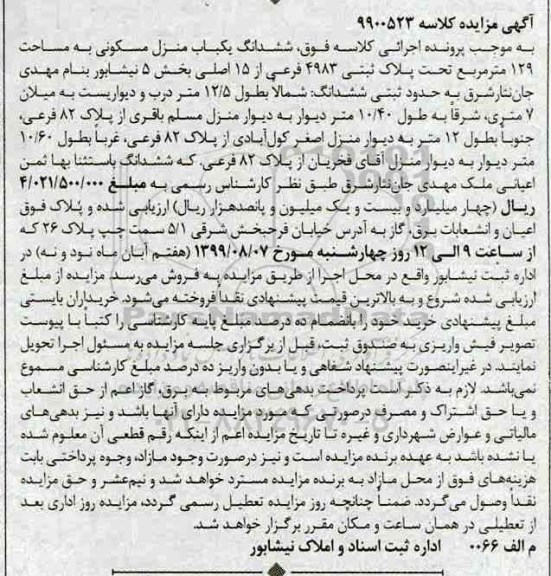 آگهی مزایده کلاسه ۹۹۰۰۵۲۳
به موجب پرونده اجرائی کلاسه فوق، ششدانگ یکباب منزل مسکونی به مساحت
۱۲۹ مترمربع تحت پلاک ثبتی ۴۹۸۳ فرعی از ۱۵ اصلی بخش ۵ نیشابور بنام مهدی
جان‌نثارشرق به حدود ثبتی ششدانگ: شمالاً بطول ۱۲/۵ متر درب و دیواریست به میلان
۷ متری، شرقاً به طول ۱۰/۴۰ متر دیوار به دیوار منزل مسلم باقری از پلاک ۸۲ فرعی،
جنوباً بطول ۱۲ متر به دیوار منزل اصغر کول‌آبادی از پلاک ۸۲ فرعی، غرباً بطول ۱۰/۶۰
متر دیوار به دیوار منزل آقای فخریان از پلاک ۸۲ فرعی. که ششدانگ باستثنا بها ثمن
اعیانی ملک مهدی جان‌نثارشرق طبق نظر کارشناس رسمی به مبلغ ۴/۰۲۱/۵۰۰/۰۰۰
ریال (چهار میلیارد و بیست و یک میلیون و پانصدهزار ریال) ارزیابی شده و پلاک فوق
اعیان و انشعابات برق، گاز به آدرس خیابان فرحبخش شرقی ۵/۱ سمت چپ پلاک ۲۶ که
از ساعت ۹ الی ۱۲ روز چهارشنبه مورخ ۱۳۹۹/۰۸/۰۷ (هفتم آبان ماه نود و نه) در
اداره ثبت نیشابور واقع در محل اجرا از طریق مزایده به فروش می‌رسد. مزایده از مبلغ
ارزیابی شده شروع و به بالاترین قیمت پیشنهادی نقداً فروخته می‌شود. خریداران بایستی
مبلغ پیشنهادی خرید خود را بانضمام ده درصد مبلغ پایه کارشناسی را کتباً با پیوست
تصویر فیش واریزی به صندوق ثبت، قبل از برگزاری جلسه مزایده به مسئول اجرا تحویل
نمایند. در غیراینصورت پیشنهاد شفاهی و یا بدون واریز ده درصد مبلغ کارشناسی مسموع
نمی‌باشد. لازم به ذکر است پرداخت بدهی‌های مربوط به برق، گاز اعم از حق انشعاب
و یا حق اشتراک و مصرف درصورتی که مورد مزایده دارای آنها باشد و نیز بدهی‌های
مالیاتی و عوارض شهرداری و غیره تا تاریخ مزایده اعم از اینکه رقم قطعی آن معلوم شده
یا نشده باشد به عهده برنده مزایده است و نیز درصورت وجود مازاد، وجوه پرداختی بابت
هزینه‌های فوق از محل مازاد به برنده مزایده مسترد خواهد شد و نیم‌عشر و حق مزایده
نقداً وصول می‌گردد. ضمناً چنانچه روز مزایده تعطیل رسمی گردد، مزایده روز اداری بعد
از تعطیلی در همان ساعت و مکان مقرر برگزار خواهد شد.
م الف ۰۰۶۶ اداره ثبت اسناد و املاک نیشابور